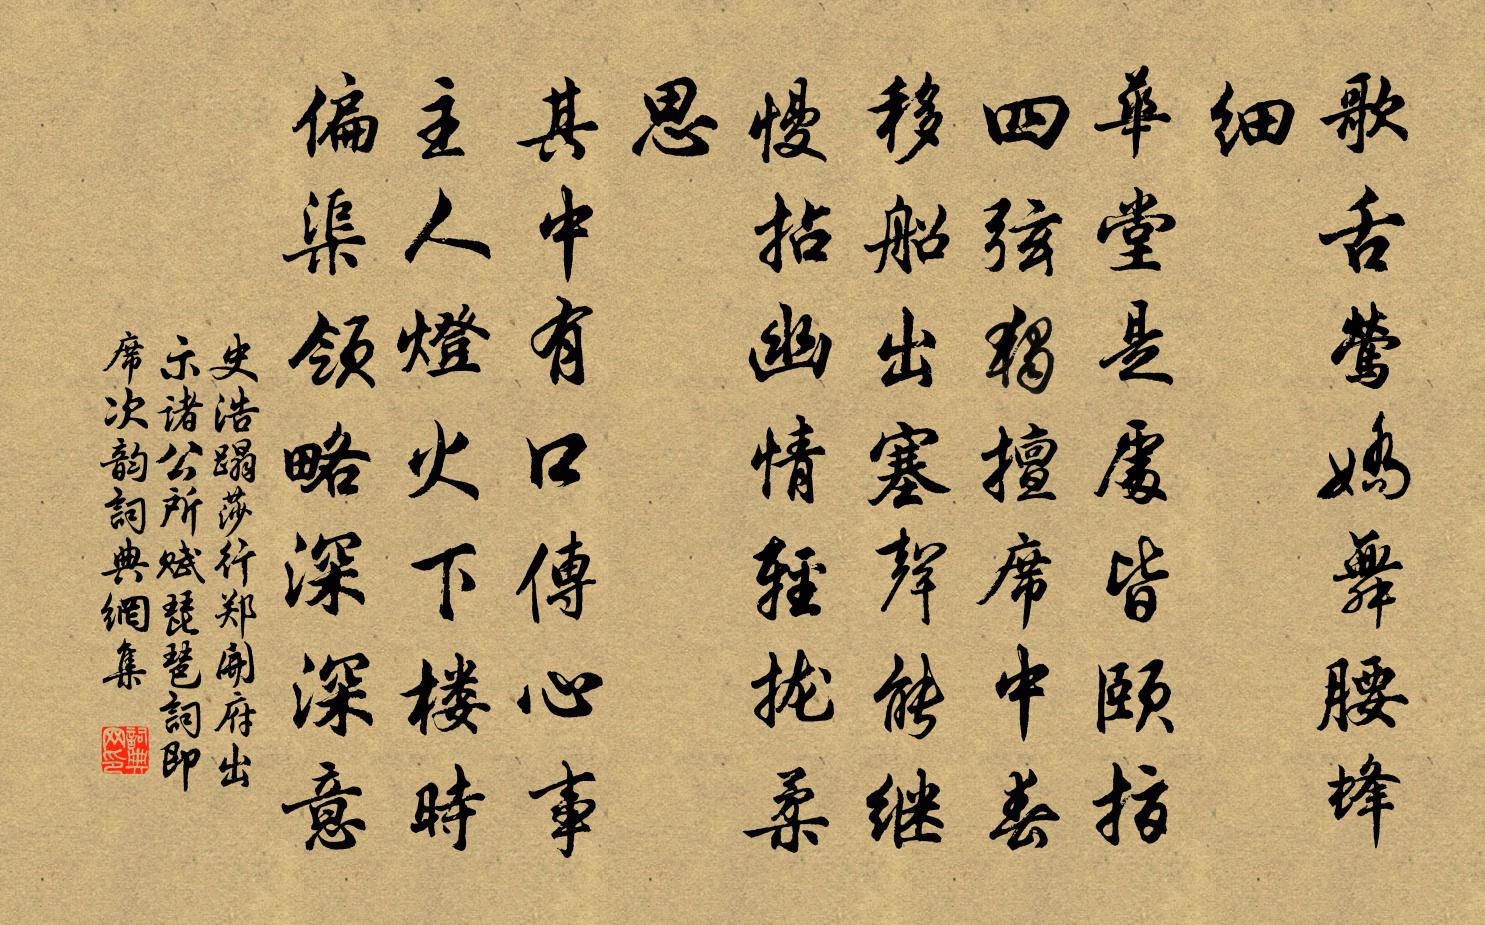 歌舌莺嬌舞腰蜂
细
華堂是處皆頤指
四弦獨擅席中春
移船出塞聲能继
慢拈幽情輕拢柔
思
其中有口傳心事
主人燈火下楼時
偏渠領略深深意
史浩蹋莎行郑開府出
示诸公所赋琵琶詞即
席次韵詞典網集
詞典
网印